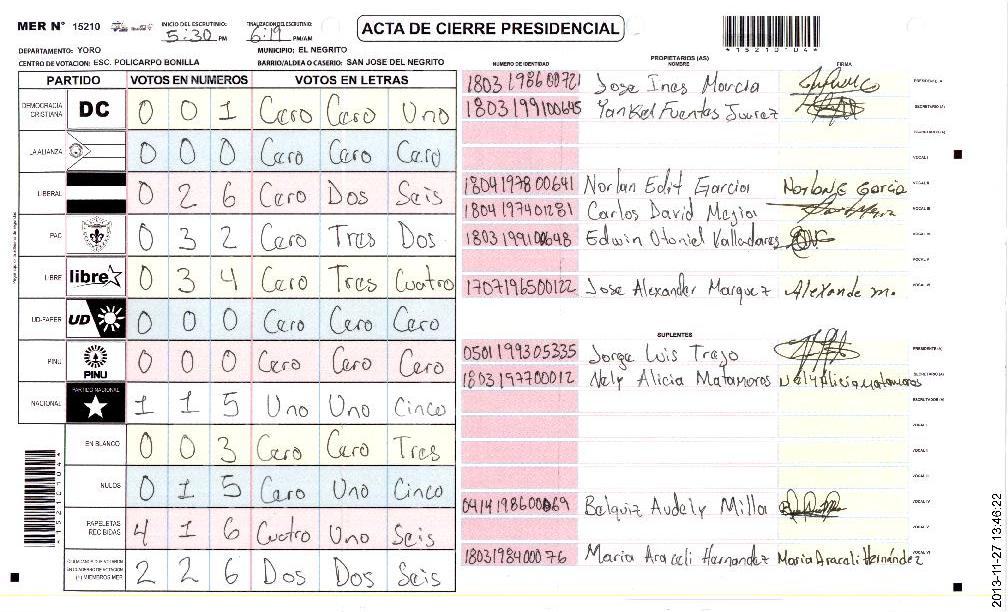 MER N° 15210 INICIO DEL ESCRUTINIO: 5:30 PM FINALIZACION DEL ESCRUTINIO: 6:19 PM/AM
ACTA DE CIERRE PRESIDENCIAL
*15210104*
DEPARTAMENTO: YORO MUNICIPIO: EL NEGRITO
CENTRO DE VOTACION: ESC. POLICARPO BONILLA BARRIO/ALDEA O CASERIO: SAN JOSE DEL NEGRITO
PARTIDO VOTOS EN NUMEROS VOTOS EN LETRAS
DEMOCRACIA CRISTIANA DC 0 0 1 Cero Cero Uno
LA ALIANZA 0 0 0 Cero Cero Cero
LIBERAL 0 2 6 Cero Dos Seis
PAC 0 3 2 Cero Tres Dos
LIBRE libre 0 3 4 Cero Tres Cuatro
UD-FAPER UD 0 0 0 Cero Cero Cero
PINU PINU 0 0 0 Cero Cero Cero
NACIONAL PARTIDO NACIONAL 1 1 5 Uno Uno Cinco
EN BLANCO 0 0 3 Cero Cero Tres
NULOS 0 1 5 Cero Uno Cinco
PAPELETAS RECIBIDAS 4 1 6 Cuatro Uno Seis
CIUDADANOS QUE VOTARON EN CUADERNO DE VOTACION (+) MIEMBROS MER 2 2 6 Dos Dos Seis
*15210104*
PROPIETARIOS (AS)
NUMERO DE IDENTIDAD NOMBRE FIRMA
1803198600721 Jose Ines Murcia PRESIDENTE (A)
1803199100645 Yankiel Fuentes Juarez SECRETARIO (A)
ESCRUTADOR (A)
VOCAL I
1804197800641 Norlan Edit Garcia Norlan E Garcia VOCAL II
1804197401281 Carlos David Mejia VOCAL III
1803199100648 Edwin Otoniel Valladares VOCAL IV
VOCAL V
1707196500122 Jose Alexander Marquez Alexande m. VOCAL VI
SUPLENTES
0501199305335 Jorge Luis Trejo PRESIDENTE (A)
1803197700012 Nely Alicia Matamoros Nely Alicia matamoros SECRETARIO (A)
ESCRUTADOR (A)
VOCAL I
VOCAL II
VOCAL III
0414198600069 Belquiz Audely Milla VOCAL IV
VOCAL V
1803198400076 Maria Araceli Hernandez Maria Araceli Hernández VOCAL VI
2013-11-27 13:46:22